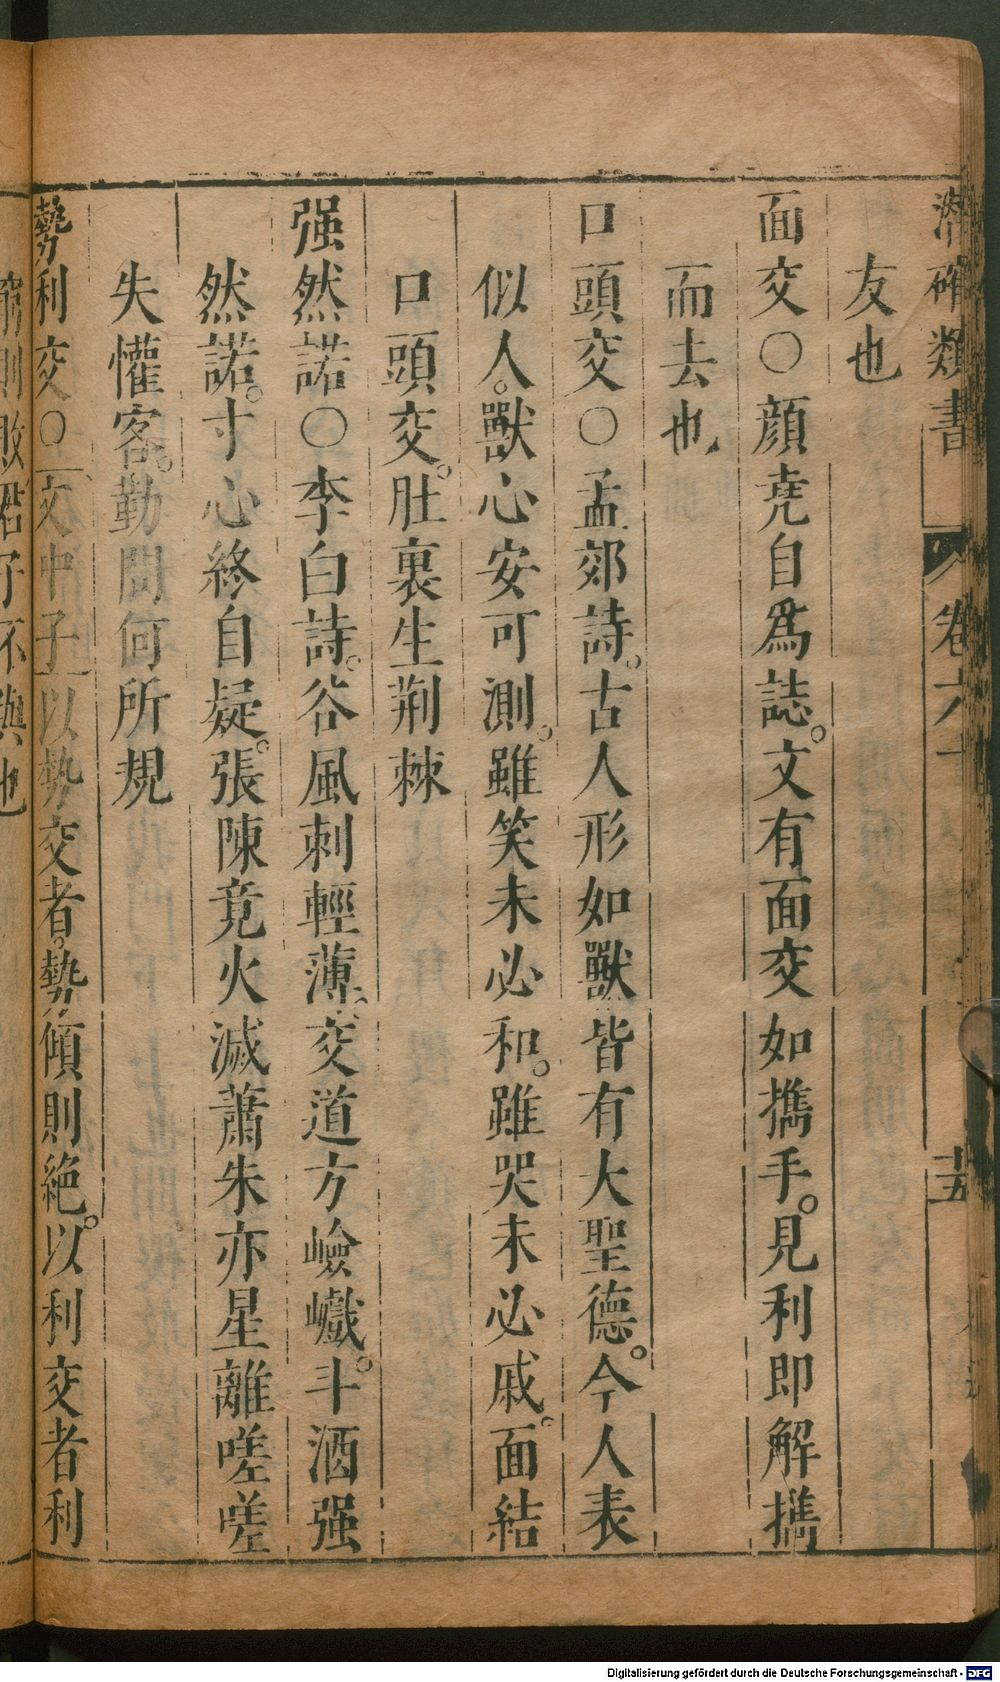 潛確類書 卷六十 十五
友也
面交○顔堯自爲誌。文有面交如擕手。見利即解擕
而去也
口頭交○孟郊詩。古人形如獸皆有大聖德。今人表
似人。獸心安可測。雖笑未必和。雖哭未必戚。面結
口頭交。肚裏生荆棘
强然諾○李白詩。谷風刺輕薄。交道方嶮巇。斗酒强
然諾。寸心終自疑。張陳竟火滅蕭朱亦星離嗟嗟
失懽客。勤問何所規
勢利交○文中子以勢交者。勢傾則絶。以利交者利
窮則敗君子不與也
Digitalisierung gefördert durch die Deutsche Forschungsgemeinschaft - DFG